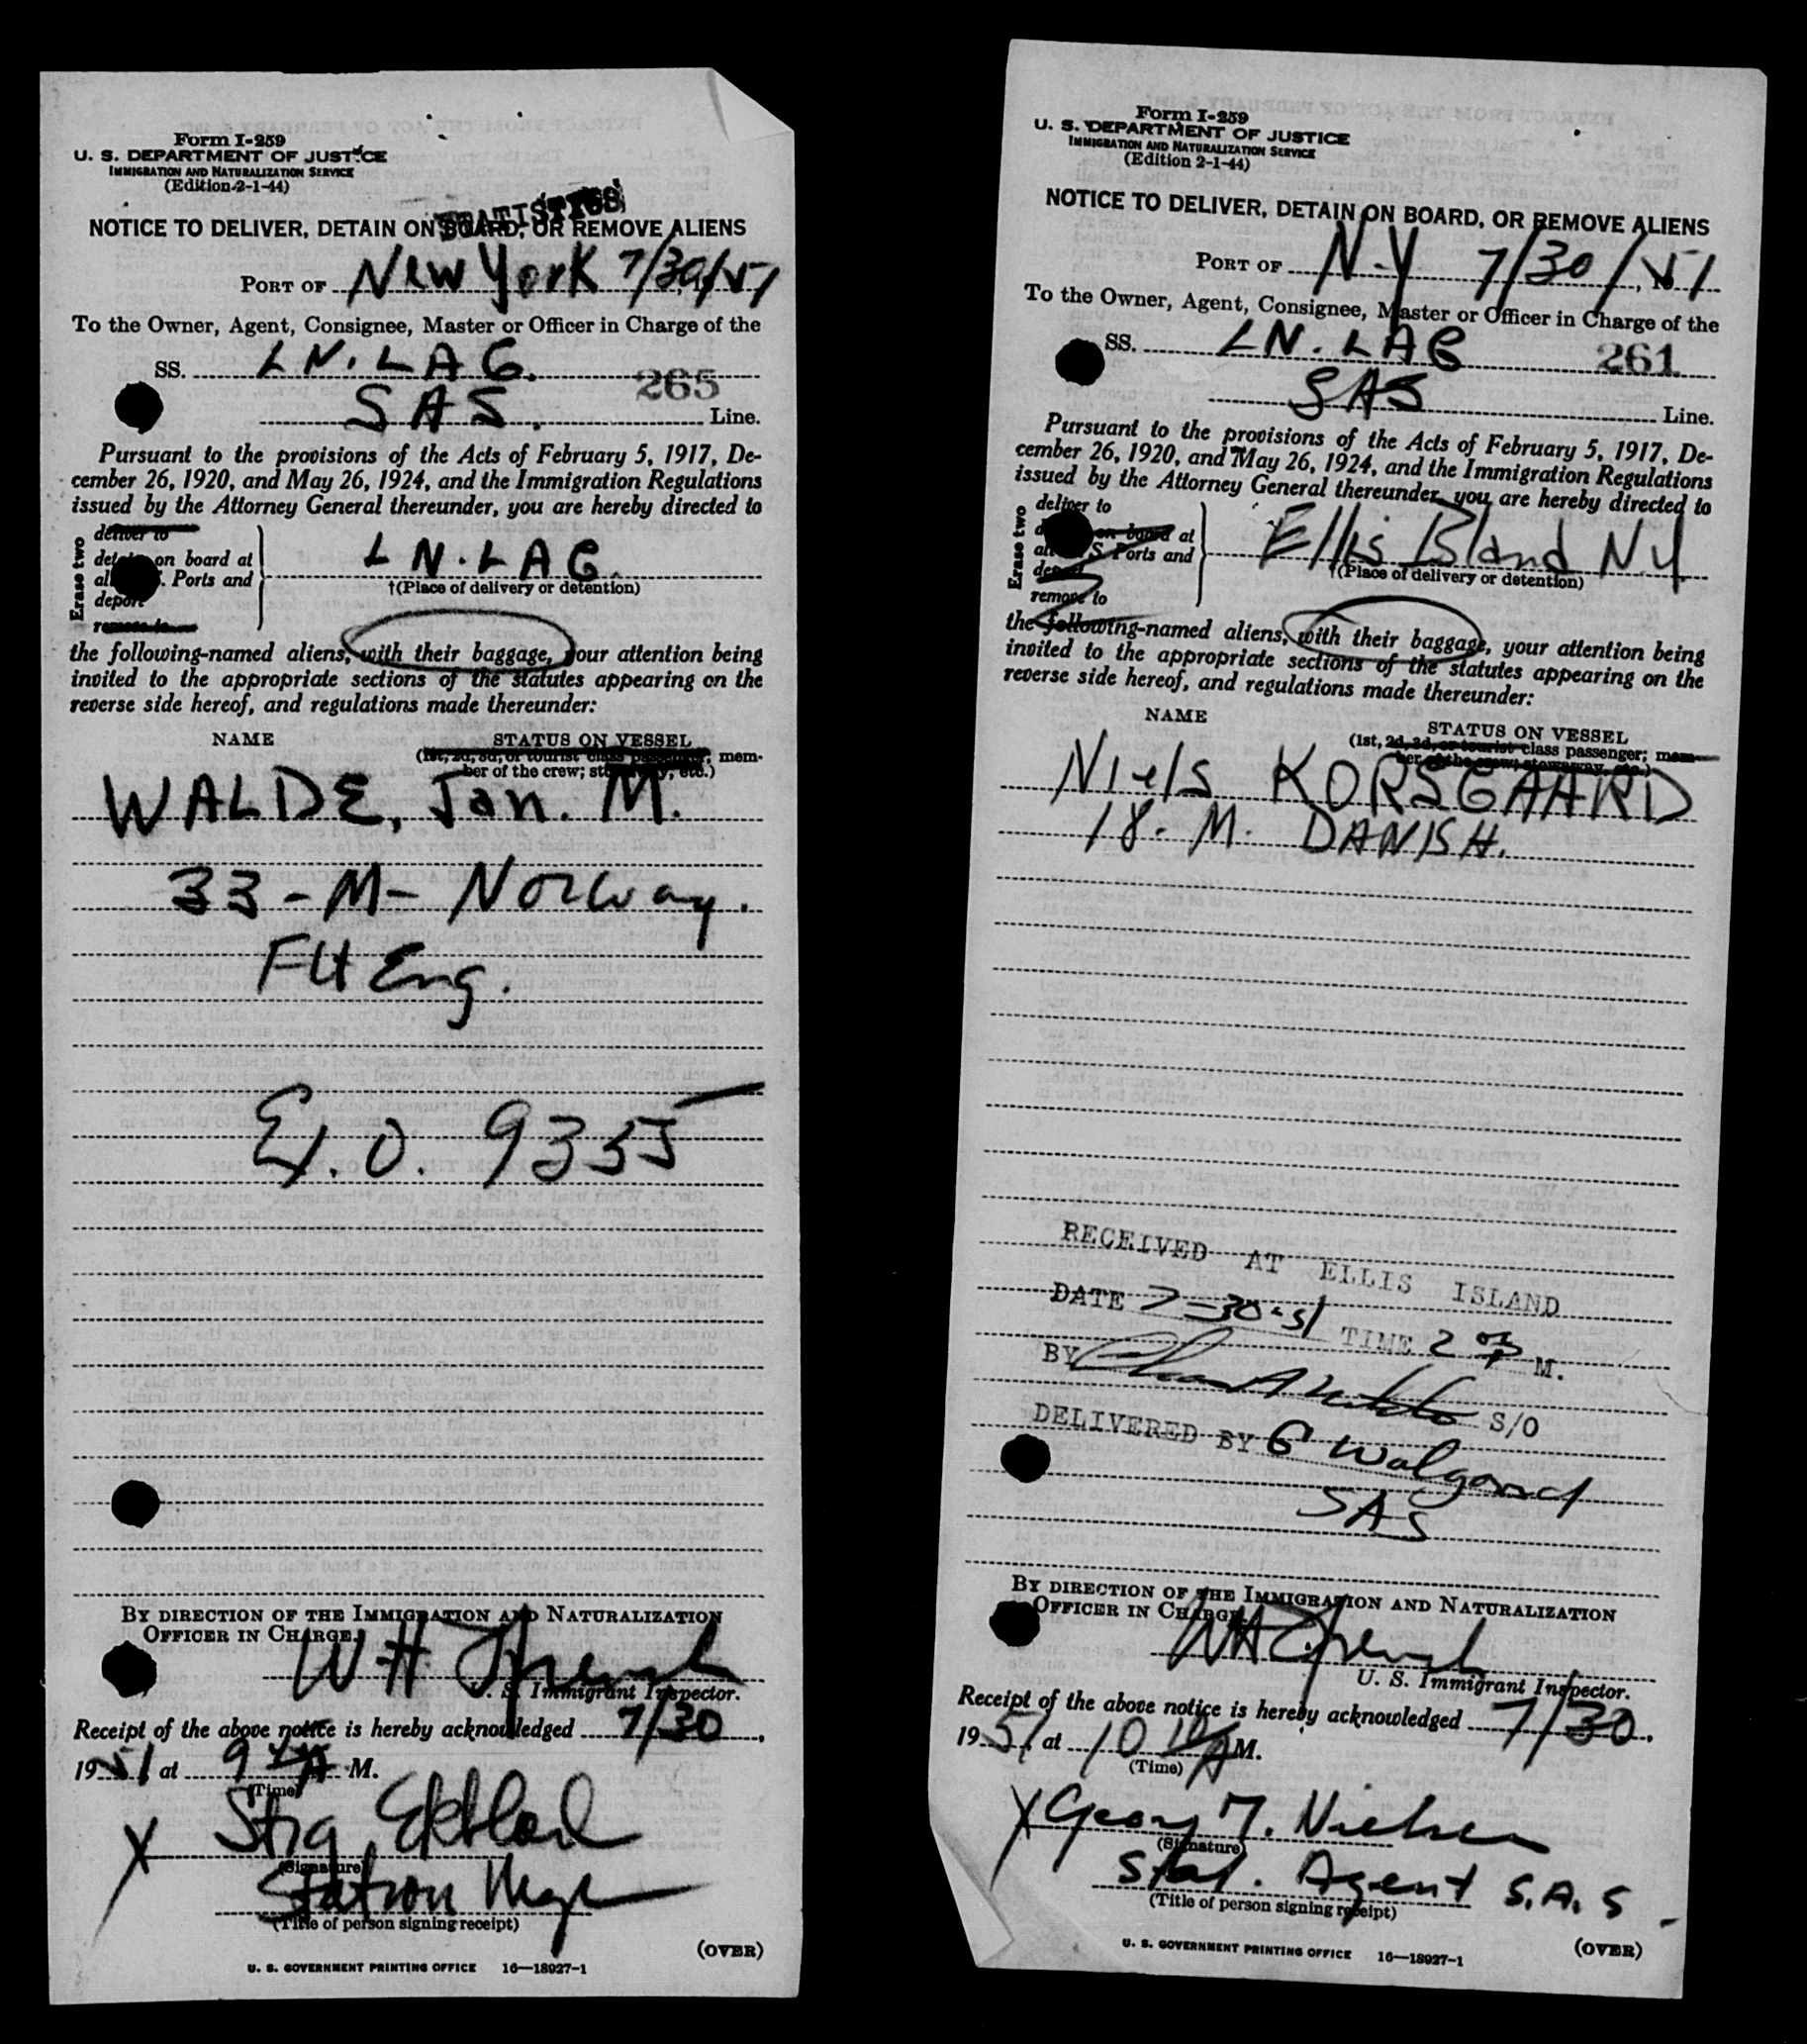 Form I-259
U. S. DEPARTMENT OF JUSTICE
IMMIGRATION AND NATURALIZATION SERVICE
(Edition 2-1-44)
STATISTICS
NOTICE TO DELIVER, DETAIN ON BOARD, OR REMOVE ALIENS
PORT OF New York 7/30/51
To the Owner, Agent, Consignee, Master or Officer in Charge of the
SS. LN. LAG.
265
SAS. Line.
Pursuant to the provisions of the Acts of February 5, 1917, De-
cember 26, 1920, and May 26, 1924, and the Immigration Regulations
issued by the Attorney General thereunder, you are hereby directed to
Erase two
deliver to
on board at
Ports and
deport
remove to
LN. LAG.
†(Place of delivery or detention)
the following-named aliens, with their baggage, your attention being
invited to the appropriate sections of the statutes appearing on the
reverse side hereof, and regulations made thereunder:
NAME STATUS ON VESSEL
(1st, 2d, 3d, or tourist class passenger; mem-
ber of the crew; etc.)
WALDE, Jan. M.
33 - M - Norway.
Flt Eng.
E.O. 9355
BY DIRECTION OF THE IMMIGRATION AND NATURALIZATION
OFFICER IN CHARGE.
W H
U. S. Immigrant Inspector.
Receipt of the above notice is hereby acknowledged 7/30,
1951 at 9 A M.
(Time)
X Stig Ekblad
(Signature)
Station Mgr
(Title of person signing receipt)
(OVER)
U. S. GOVERNMENT PRINTING OFFICE 16—18927-1
Form I-259
U. S. DEPARTMENT OF JUSTICE
IMMIGRATION AND NATURALIZATION SERVICE
(Edition 2-1-44)
NOTICE TO DELIVER, DETAIN ON BOARD, OR REMOVE ALIENS
PORT OF N.Y 7/30/51
To the Owner, Agent, Consignee, Master or Officer in Charge of the
SS. LN. LAG
261
SAS Line.
Pursuant to the provisions of the Acts of February 5, 1917, De-
cember 26, 1920, and May 26, 1924, and the Immigration Regulations
issued by the Attorney General thereunder, you are hereby directed to
Erase two
deliver to
on board at
S. Ports and
deport
remove to
Ellis Island N.Y.
†(Place of delivery or detention)
the following-named aliens, with their baggage, your attention being
invited to the appropriate sections of the statutes appearing on the
reverse side hereof, and regulations made thereunder:
NAME STATUS ON VESSEL
(1st, 2d, 3d, or tourist class passenger; mem-
ber of the crew; stowaway, etc.)
Niels KORSGAARD
18. M. DANISH.
RECEIVED AT ELLIS ISLAND
DATE 7-30-51 TIME 2 P M.
BY S/O
DELIVERED BY G Walgond
SAS
BY DIRECTION OF THE IMMIGRATION AND NATURALIZATION
OFFICER IN CHARGE.
WH
U. S. Immigrant Inspector.
Receipt of the above notice is hereby acknowledged 7/30,
1951 at 10 10 A M.
(Time)
X Georg M. Nielsen
(Signature)
Stat. Agent S.A.S.
(Title of person signing receipt)
(OVER)
U. S. GOVERNMENT PRINTING OFFICE 16—18927-1